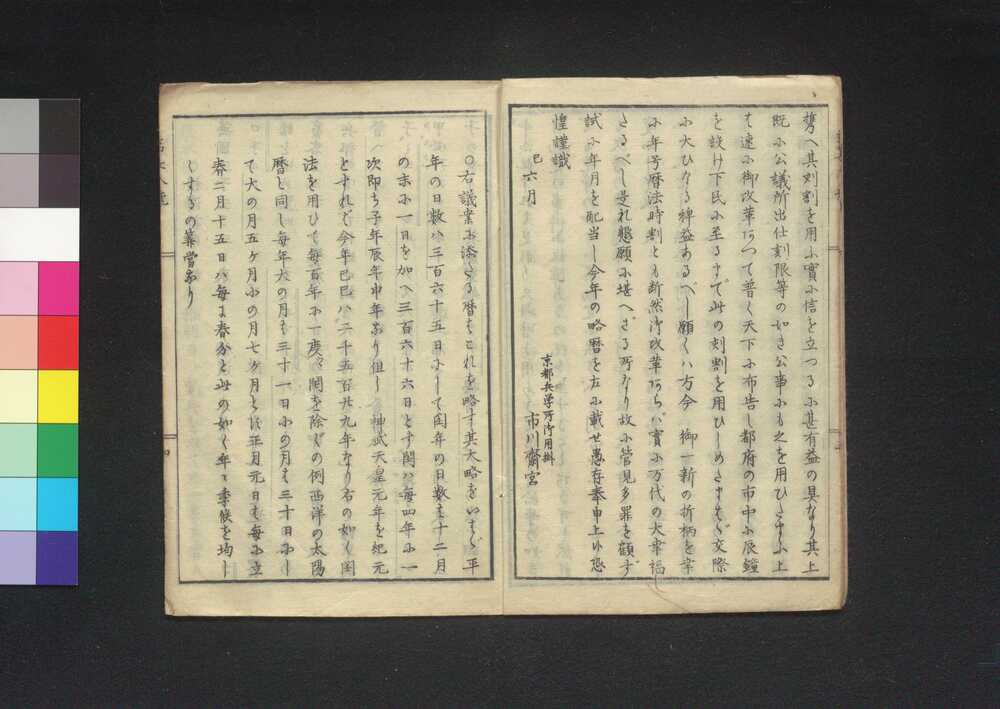 携へ其刻割を用ふ實小信を立つるふ甚有益の具なり其上
既ふ公議所出仕刻限等の如き公事ふも之を用ひたまふ上
も速ふ御改革ありて普く天下ふ布告し都府の市中ふ辰鐘
を設け下民ふ至るまで此の刻割を用ひしめたまはゞ交際
ふ大ひなる裨益あるべし願くハ方今 御一新の折柄を幸
ふ年号暦法時割とも斬然御改革あらハ實ふ万代の大幸福
たるべし是れ懇願ふ堪へざる所なり故ふ管見多罪を顧ず
試ふ年月を配当し今年の略暦を左ふ載せ愚存奉申上候恐
惶謹識
巳六月
京都兵学所御用掛
市川齋宮
○右議案ふ添たる暦はこれを略す其大略をいはゞ平
年の日数ハ三百六十五日ふして閏年の日数は十二月
の末ふ一日を加へ三百六十六日とす閏ハ毎四年ふ一
次即ち子年辰年申年なり但し神武天皇元年を紀元
とすれば今年己巳ハ二千五百廿九年なり右の如く閏
法を用ひて毎百年ふ一度ツヽ閏を除くの例西洋の太陽
暦と同し毎年大の月は三十一日小の月は三十日ふし
て大の月五ケ月小の月七ケ月とし正月元日は毎ふ立
春二月十五日ハ毎ふ春分と此の如く年々季候を均し
くするの算當なり